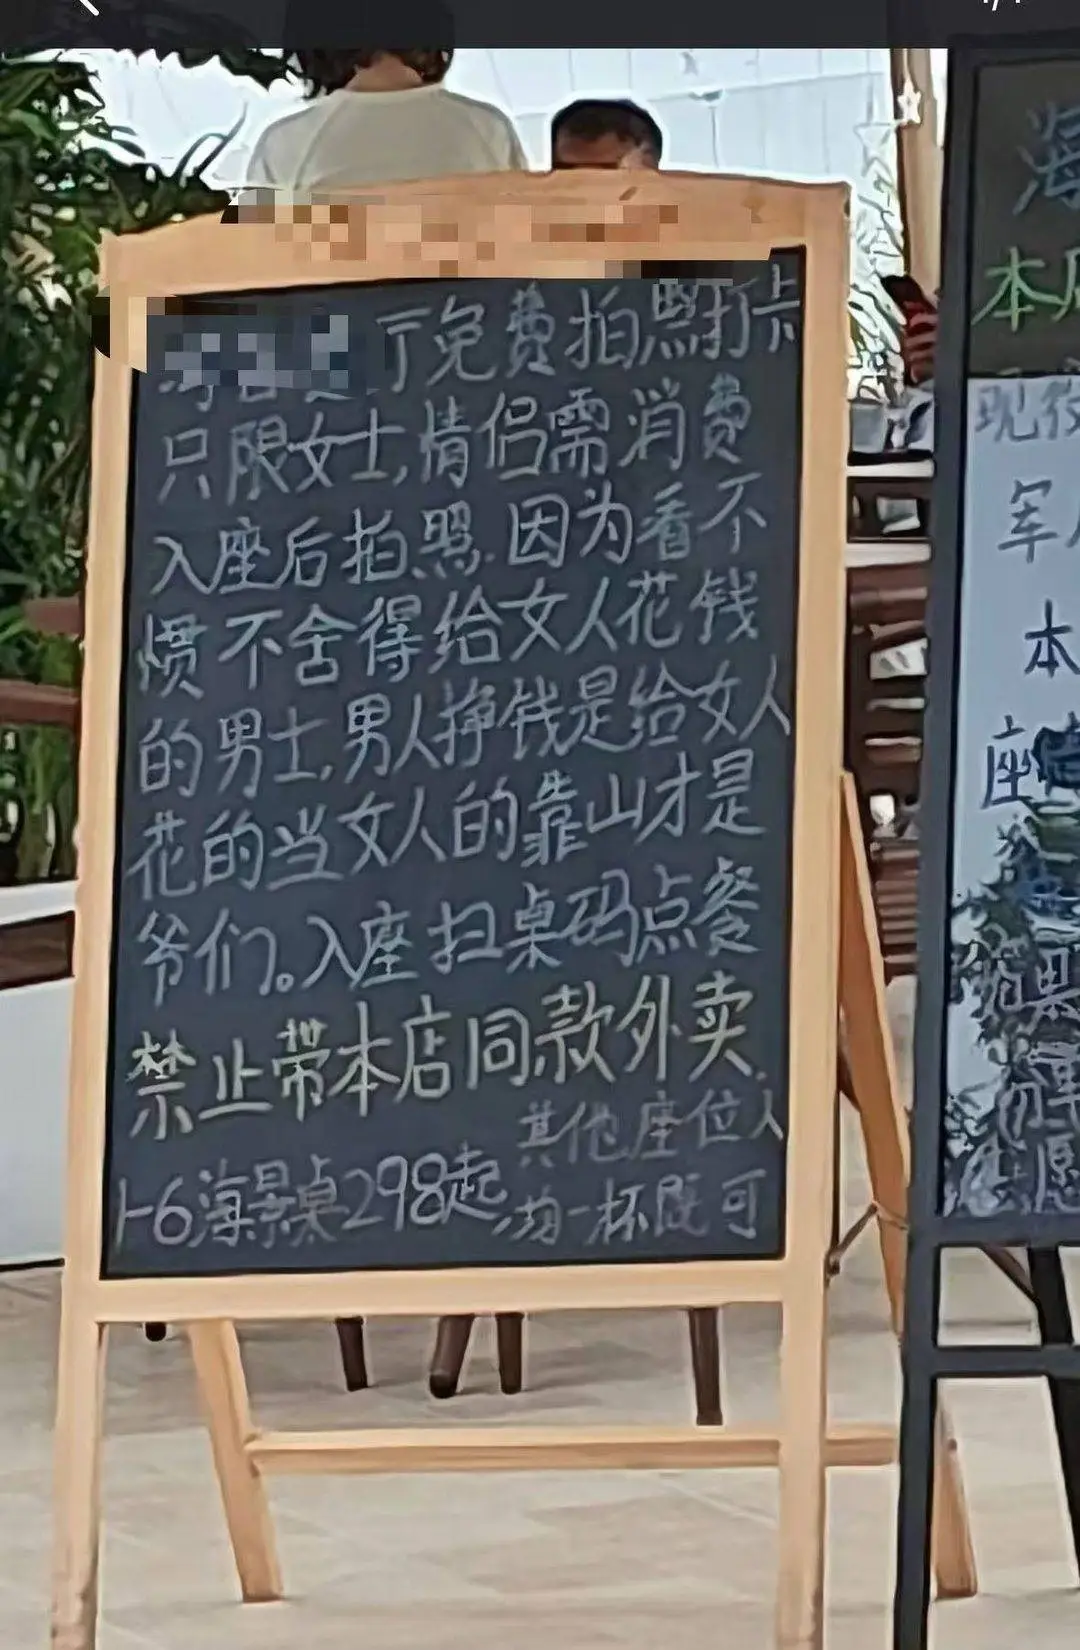 厅免费拍照打卡
只限女士,情侣需消费
入座后拍照.因为看不
惯不舍得给女人花钱
的男士.男人挣钱是给女人
花的当女人的靠山才是
爷们。入座扫桌码点餐
禁止带本店同款外卖.
其他座位人
1-6海景桌298起,均一杯既可
海
本店
现役
军
本
座